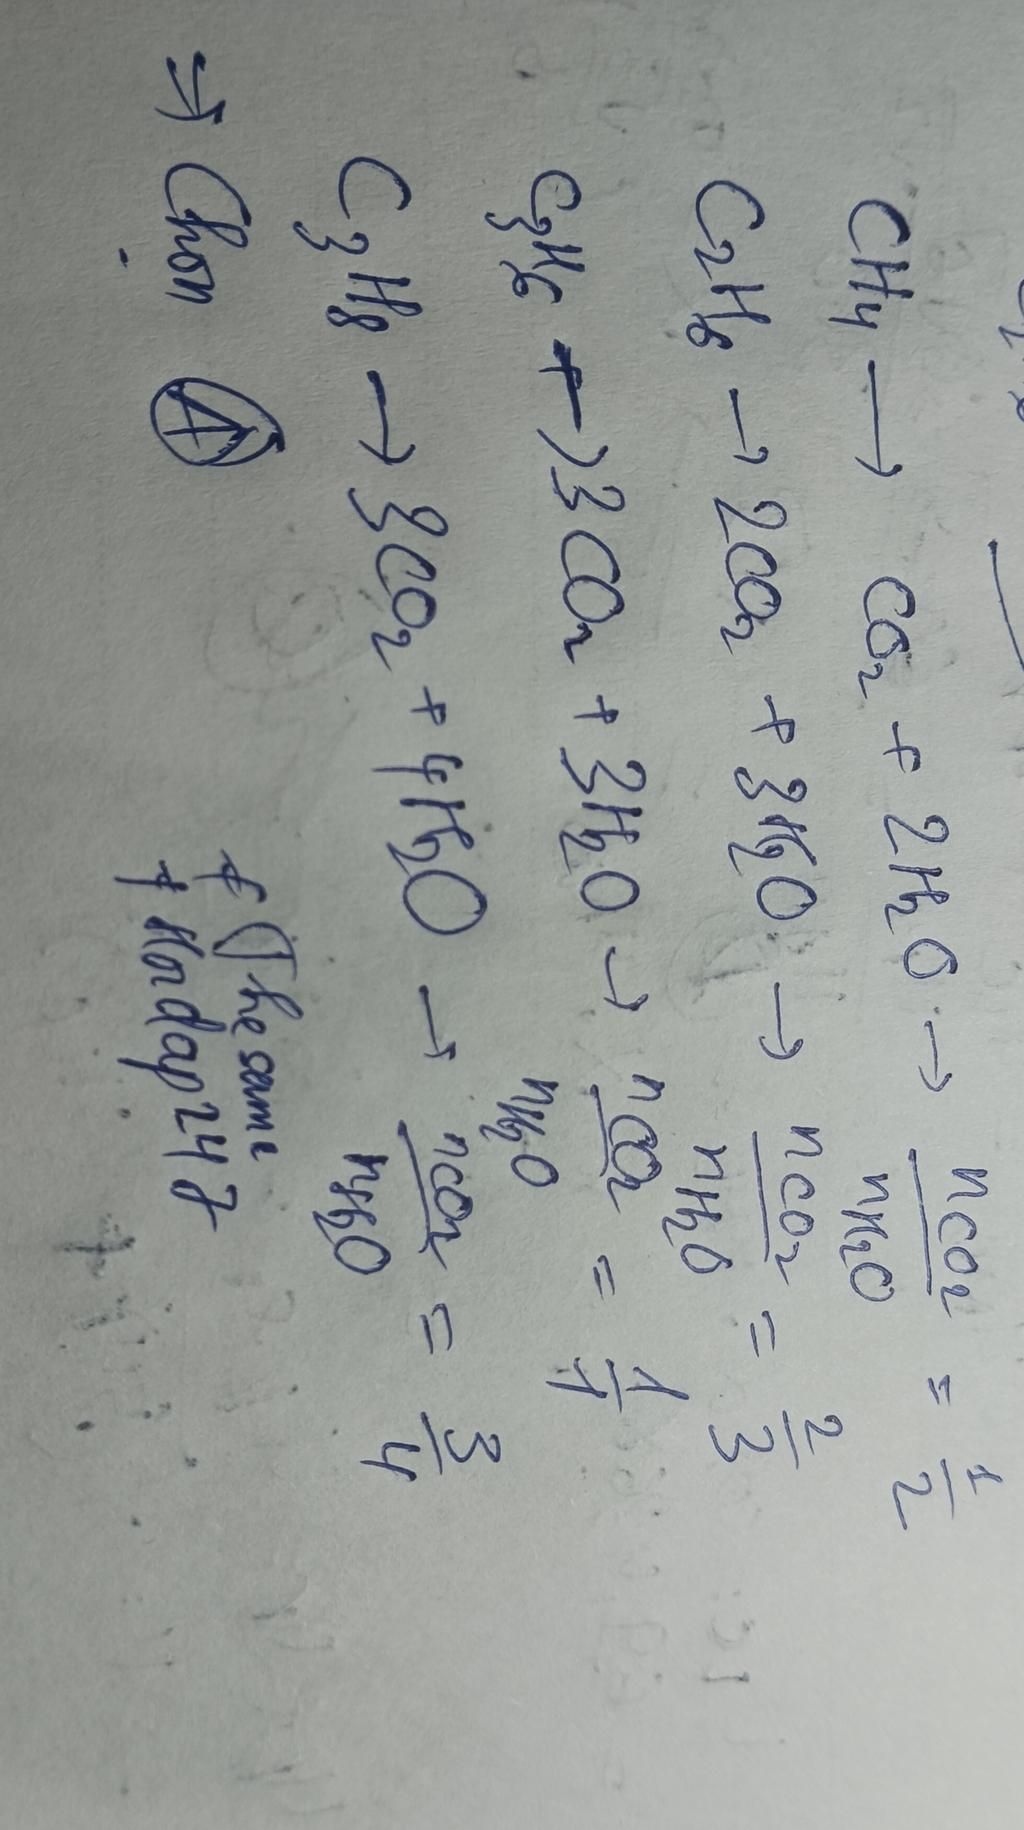 CH4 → CO2 + 2H2O → nCO2/nH2O = 1/2
C2H6 → 2CO2 + 3H2O → nCO2/nH2O = 2/3
C3H6 → 3CO2 + 3H2O → nCO2/nH2O = 1/1
C3H8 → 3CO2 + 4H2O → nCO2/nH2O = 3/4
⇒ Chọn A
# The same
# Hoidap247